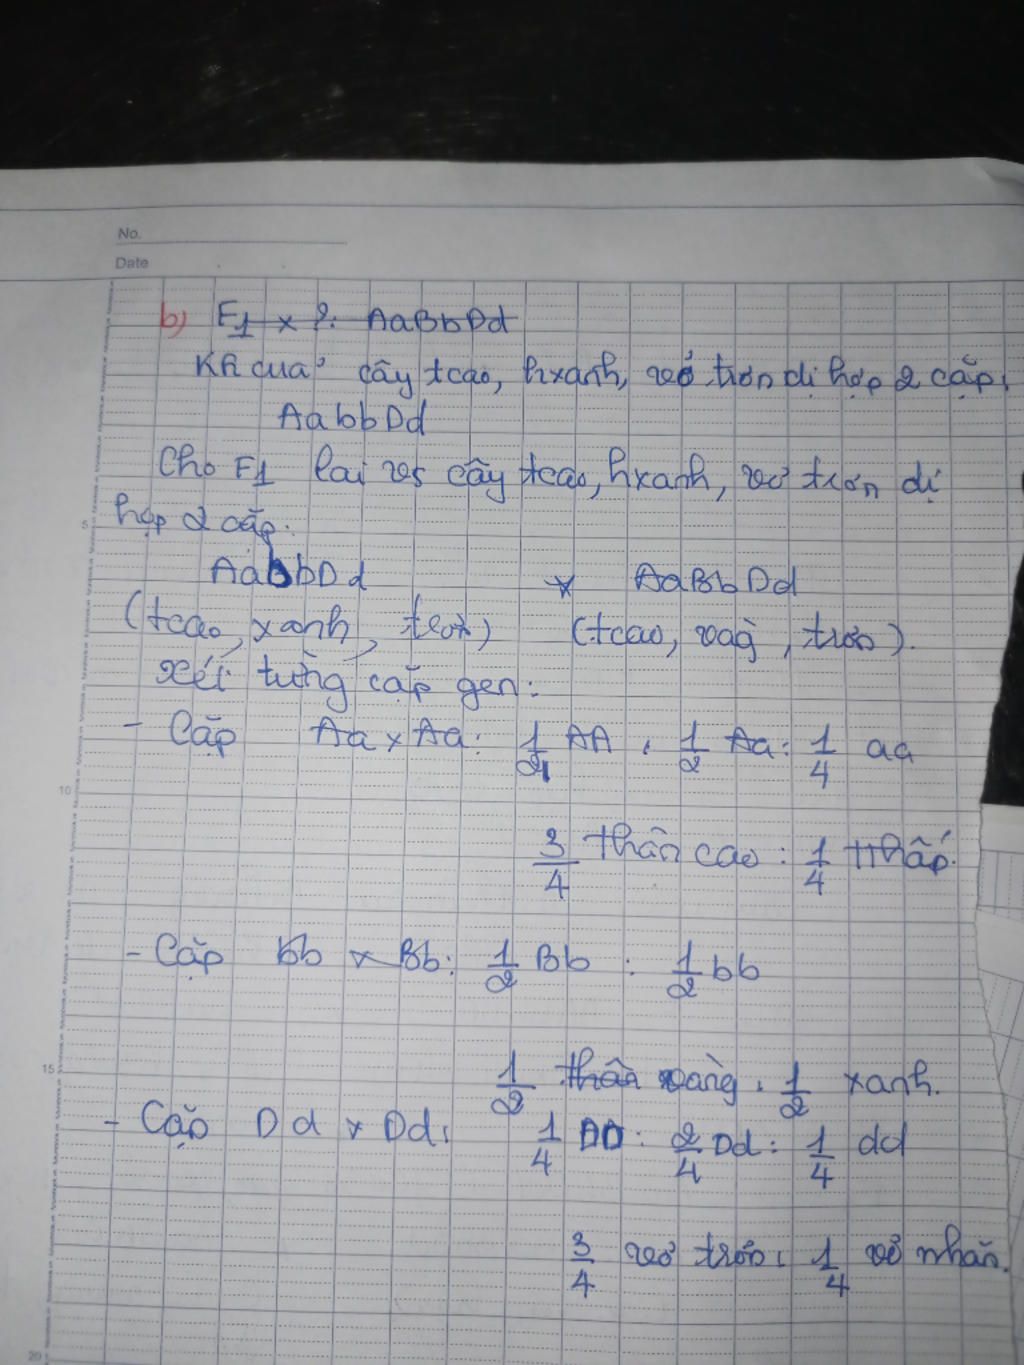 No.
Date
b) F1 x ?: AaBbDd
KH của cây tcao, hxanh, vỏ trơn dị hợp 2 cặp.
AabbDd
Cho F1 lai vs cây tcao, hxanh, vỏ trơn dị
5 hợp 2 cặp.
AabbDd x AaBbDd
(tcao, xanh, trơn) (tcao, vàg, trơn).
Xét từng cặp gen:
- Cặp Aa x Aa: 1/4 AA : 1/2 Aa : 1/4 aa
10
3/4 thân cao : 1/4 thấp.
- Cặp bb x Bb: 1/2 Bb : 1/2 bb
15 1/2 thân vàng : 1/2 xanh.
- Cặp Dd x Dd: 1/4 DD : 2/4 Dd : 1/4 dd
3/4 vỏ trơn : 1/4 vỏ nhăn.
20